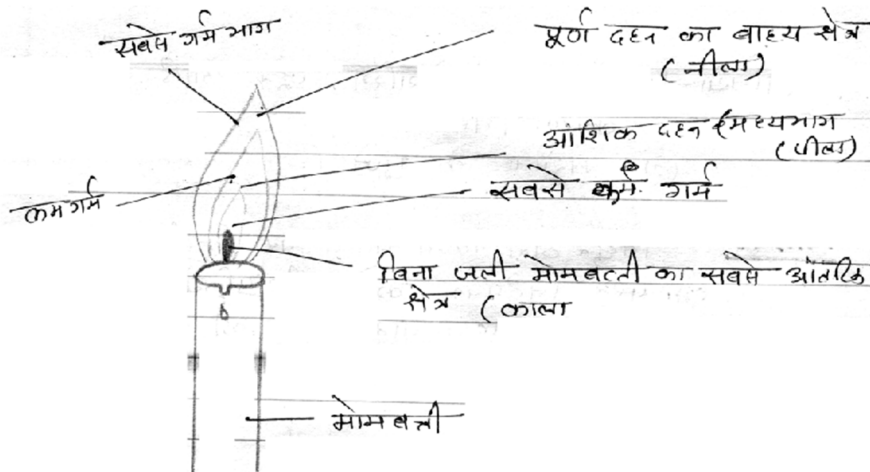 सबसे गर्म भाग
पूर्ण दहन का बाह्य क्षेत्र
(नीला)
आंशिक दहन (मध्यभाग
(पीला)
कमगर्म
सबसे कम गर्म
बिना जली मोमबत्ती का सबसे आंतरिक
क्षेत्र (काला
मोमबत्ती